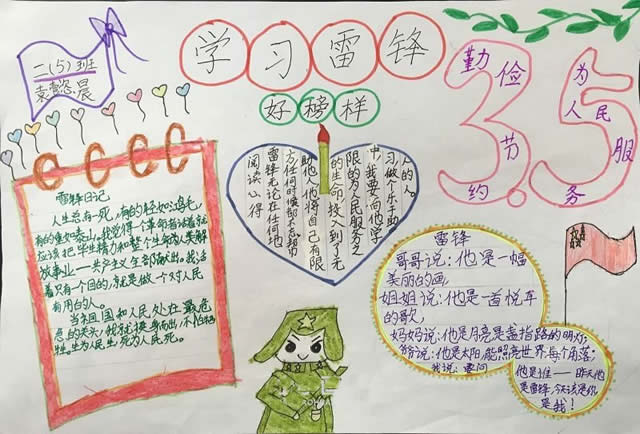 二(5)班
袁懿宸晨
学习雷锋
好榜样
勤俭节约
为人民服务
3.5
雷锋日记
人生总有一死,有的轻如鸿毛,
有的重如泰山,我觉得一个革命者活着就
应该把毕生精力和整个生命为人类解
放事业——共产主义全部献出。我活
着只有一个目的,就是做一个对人民
有用的人。
当祖国和人民处在最危
急的关头,我就挺身而出,不怕牺
牲生为人民生,死为人民死。
阅读心得
雷锋无论在任何地
方任何时候都不忘帮
助他人他将自己有限
的生命投入到了无
限的为人民服务之
中,我要向他学
习,做个乐于助
人的人。
雷锋
哥哥说:他是一幅
美丽的画,
姐姐说:他是一首悦耳
的歌,
妈妈说:他是月亮是盏指路的明灯;
爷爷说:他是太阳,能照亮世界每个角落;
我说:要问
他是谁——昨天他
是雷锋,今天该是你
是我!